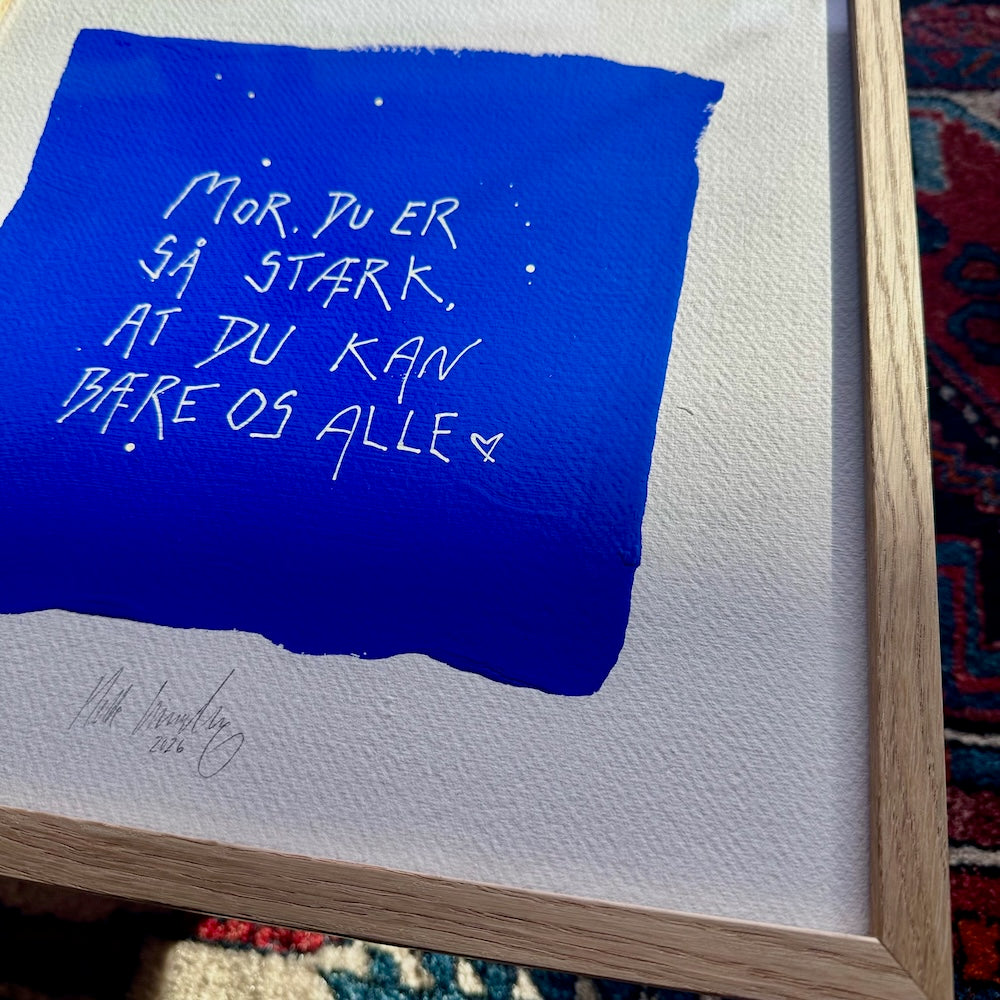 MOR. DU ER
SÅ STÆRK,
AT DU KAN
BÆRE OS ALLE ♡
2026